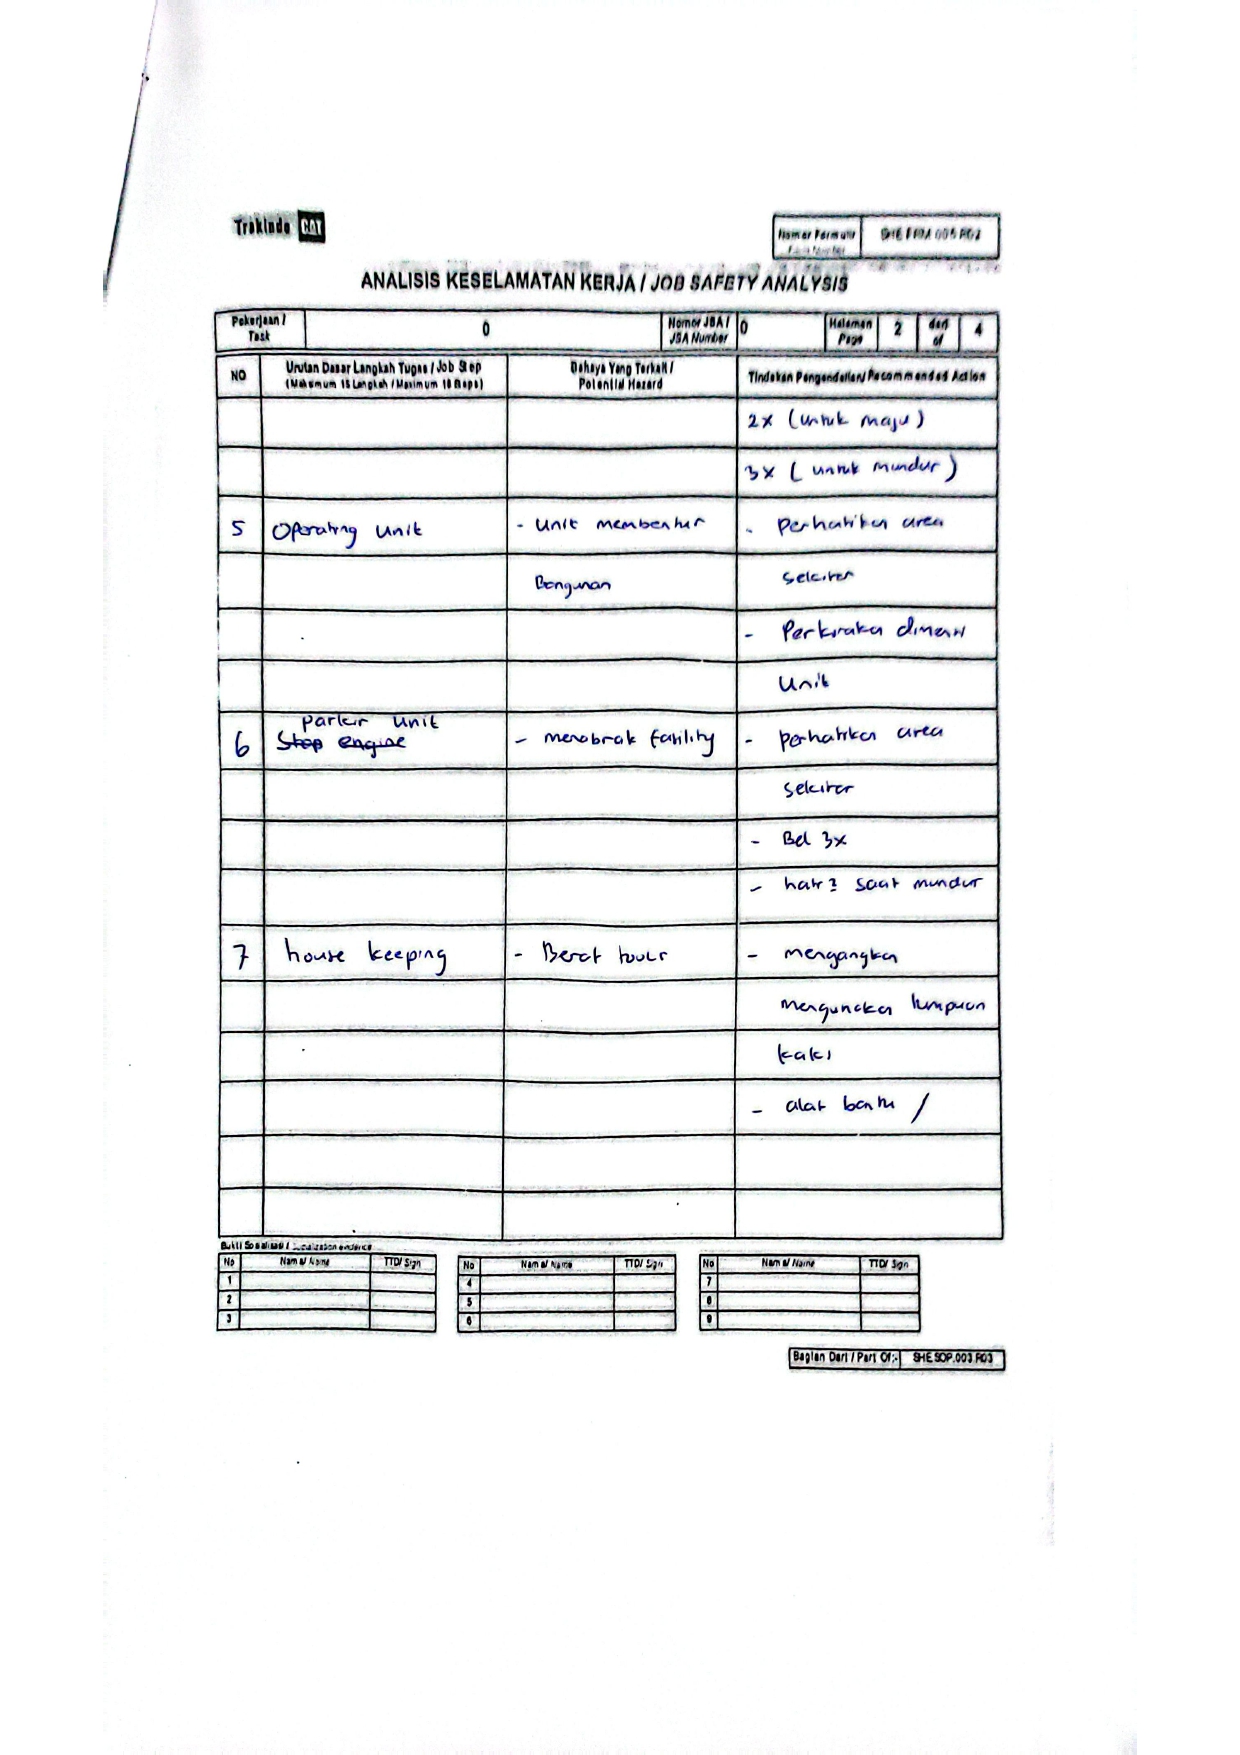 Trakindo CAT
Nomor Formulir
SHE.FRM.005.R02
Form Number
ANALISIS KESELAMATAN KERJA / JOB SAFETY ANALYSIS
Pekerjaan / Task
0
Nomor JSA / JSA Number
0
Halaman Page
2
dari of
4
NO
Urutan Dasar Langkah Tugas / Job Step
Bahaya Yang Terkait / Potential Hazard
Tindakan Pengendalian/ Recommended Action
2x (untuk maju)
3x (untuk mundur)
5 Operating unit - Unit membentur - Perhatikan area
Bangunan sekitar
- Perkiraka dimensi
Unit
parkir unit
6 Stop engine - menabrak facility - perhatikan area
sekitar
- Bel 3x
- hati2 saat mundur
7 house keeping - Berat tools - mengangka
mengunaka tumpuan
kaki
- alat bantu /
Bukti Sosialisasi / Socialization evidence
No Nama/ Name TTD/ Sign No Nama/ Name TTD/ Sign No Nama/ Name TTD/ Sign
1 4 7
2 5 8
3 6 9
Bagian Dari / Part Of:- SHE.SOP.003.R03